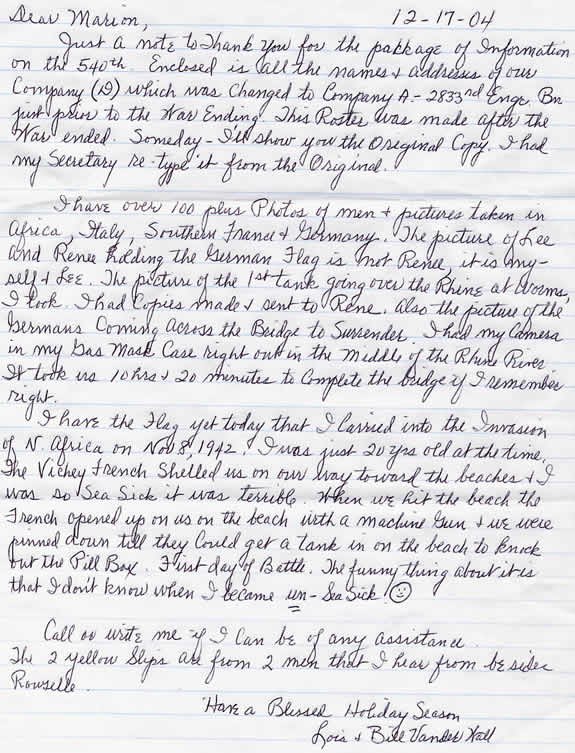 Dear Marion, 12-17-04
Just a note to Thank you for the pakkage of Information
on the 540th. Enclosed is all the names & addresses of our
Company (D) which was changed to Company A - 2833nd Engr. Bn
just prior to the War Ending. This Roster was made after the
War ended. Someday - I'll show you the Original Copy. I had
my Secretary re-type it from the Original.
I have over 100 plus Photos of men & pictures taken in
Africa, Italy, Southern France & Germany. The picture of Lee
and Renee holding the German Flag is not Renee, it is my-
self & Lee. The picture of the 1st tank going over the Rhine at Worms,
I took. I had Copies made & sent to Rene. Also the picture of the
Germans Coming Across the Bridge to Surrender. I had my Camera
in my Gas Mask Case right out in the Middle of the Rhine River
It took us 10 hrs & 20 minutes to Complete the bridge if I remember
right.
I have the Flag yet today that I Carried into the Invasion
of N. Africa on Nov 8, 1942. I was just 20 yrs old at the time.
The Vichey French Shelled us on our way toward the beaches & I
was so Sea Sick it was terrible. When we hit the beach the
French opened up on us on the beach with a machine Gun & we were
pinned down till they Could get a tank in on the beach to knock
out the Pill Box. First day of Battle. The funny thing about it is
that I don't know when I became un-Sea Sick!
Call or write me if I Can be of any assistance.
The 2 yellow Slips are from 2 men that I hear from besides
Rowselle.
Have a Blessed Holiday Season
Lois & Bill Vander Wall